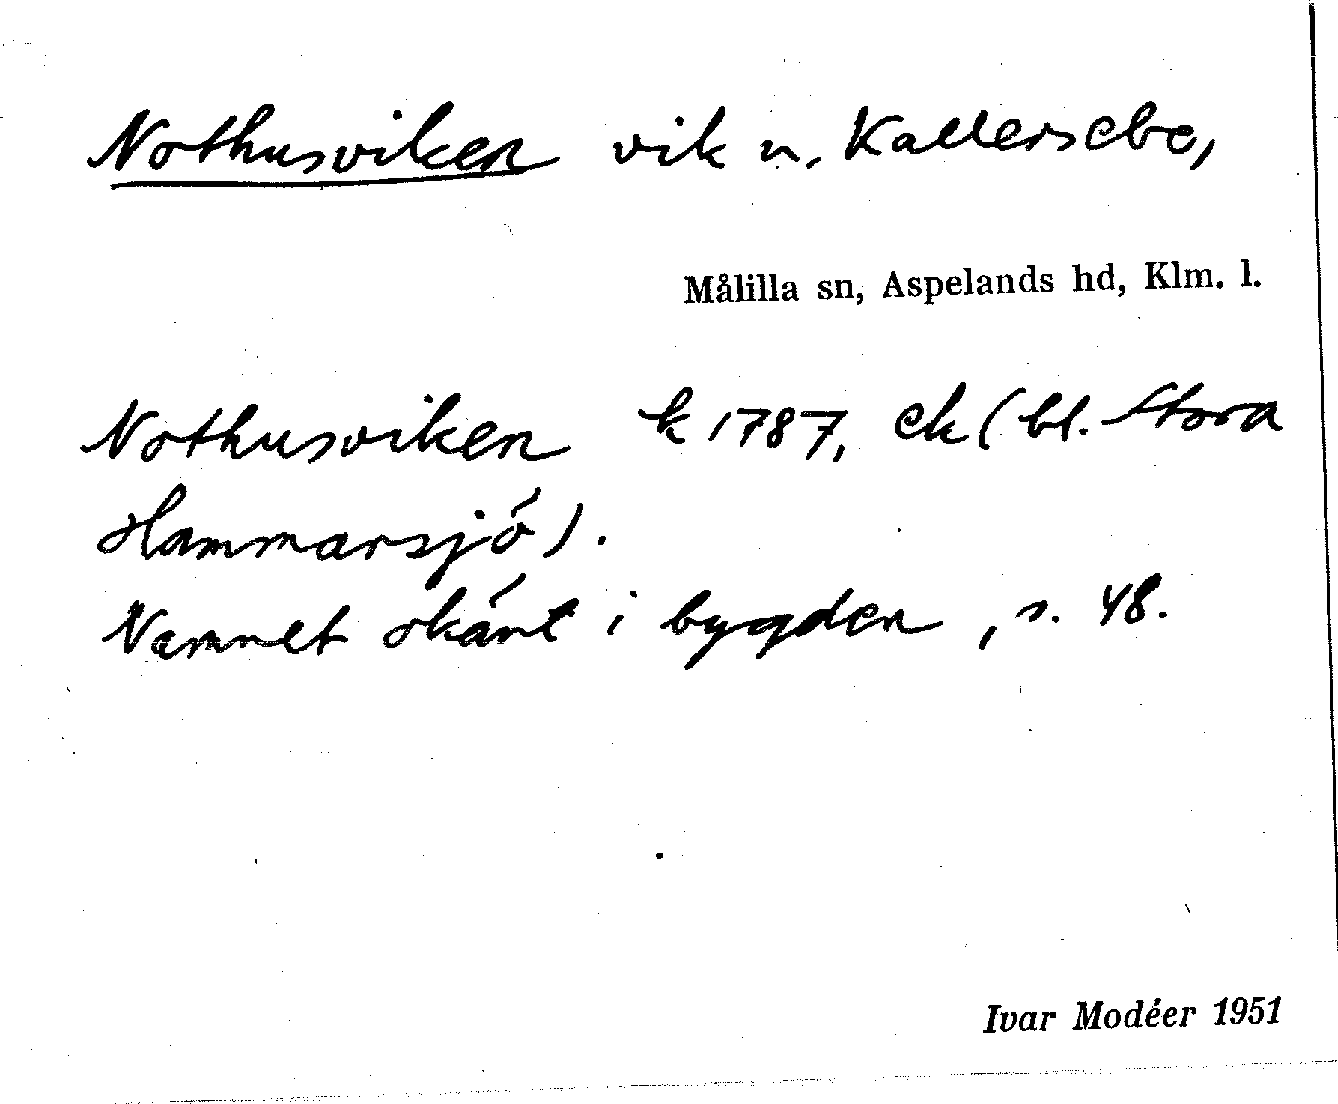 Nothusviken vik n. Kallersebo,
Målilla sn, Aspelands hd, Klm. l.
Nothusviken k 1787, ek (bl. Stora
Hammarsjö).
Namnet okänt i bygden, s. 48.
Ivar Modéer 1951